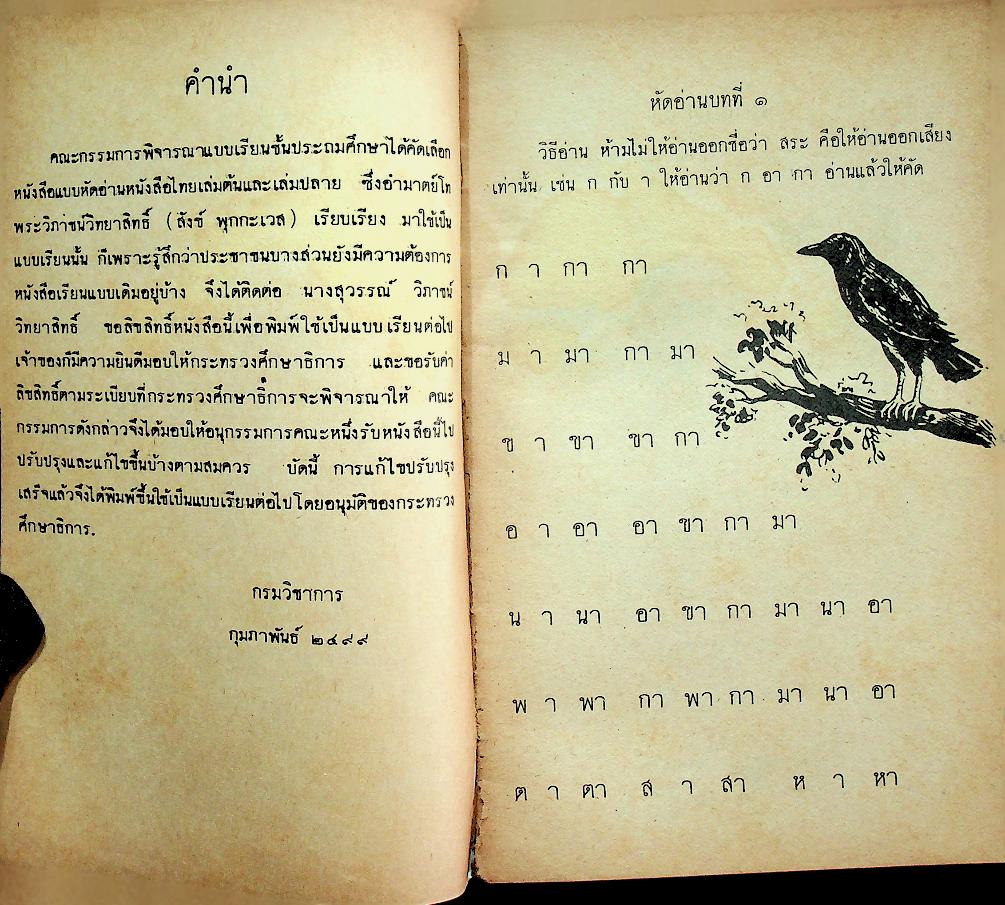 คำนำ
คณะกรรมการพิจารณาแบบเรียนชั้นประถมศึกษาได้คัดเลือก
หนังสือแบบหัดอ่านหนังสือไทยเล่มต้นและเล่มปลาย ซึ่งอำมาตย์โท
พระวิภาชน์วิทยาสิทธิ์ (สังข์ พุกกะเวส) เรียบเรียง มาใช้เป็น
แบบเรียนนั้น ก็เพราะรู้สึกว่าประชาชนบางส่วนยังมีความต้องการ
หนังสือเรียนแบบเดิมอยู่บ้าง จึงได้ติดต่อ นางสุวรรณ์ วิภาชน์
วิทยาสิทธิ์ ขอลิขสิทธิ์หนังสือนี้เพื่อพิมพ์ใช้เป็นแบบเรียนต่อไป
เจ้าของก็มีความยินดีมอบให้กระทรวงศึกษาธิการ และขอรับค่า
ลิขสิทธิ์ตามระเบียบที่กระทรวงศึกษาธิการจะพิจารณาให้ คณะ
กรรมการดังกล่าวจึงได้มอบให้อนุกรรมการคณะหนึ่งรับหนังสือนี้ไป
ปรับปรุงและแก้ไขขึ้นบ้างตามสมควร บัดนี้ การแก้ไขปรับปรุง
เสร็จแล้วจึงได้พิมพ์ขึ้นใช้เป็นแบบเรียนต่อไปโดยอนุมัติของกระทรวง
ศึกษาธิการ.
กรมวิชาการ
กุมภาพันธ์ ๒๔๙๙
หัดอ่านบทที่ ๑
วิธีอ่าน ห้ามไม่ให้อ่านออกชื่อว่า สระ คือให้อ่านออกเสียง
เท่านั้น เช่น ก กับ า ให้อ่านว่า ก อา กา อ่านแล้วให้คัด
ก า กา กา
ม า มา กา มา
ข า ขา ขา กา
อ า อา อา ขา กา มา
น า นา อา ขา กา มา นา อา
พ า พา กา พา กา มา นา อา
ต า ตา ส า สา ห า หา